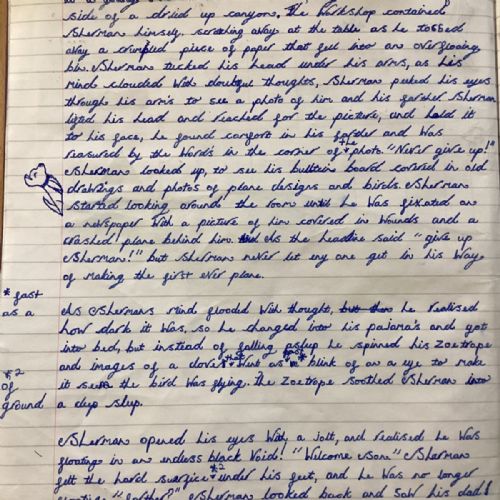 side of a dried up canyon. The workshop contained
Sherman himself, scratching away at the table as he tossed
away a crumpled piece of paper that fell into an overflowing
bin. Sherman tucked his head under his arms, as his
mind clouded with doubtful thoughts, Sherman peeked his eyes
through his arms to see a photo of him and his farther. Sherman
lifted his head and reached for the picture, and held it
to his face, he found comfort in his farther and was
reasured by the words in the corner of the photo. "Never give up!"
Sherman looked up, to see his bulltein board covered in old
drawings and photos of plane designs and birds. Sherman
started looking around the room until he was fixated on
a newspaper with a picture of him covered in wounds and a
crashed plane behind him. As the headline said "give up
Sherman!" but Sherman never let any one get in his way
of making the first ever plane.
* fast
as a
As Shermans mind flooded with thought, he realised
how dark it was, so he changed into his pajama's and got
into bed, but instead of falling asleep he spinned his zoetrope
and images of a dove that went as * blink of an a eye to make
it seem the bird was flying. The zoetrope soothed Sherman into
a deep sleep.
*2
of
ground
Sherman opened his eyes with a jolt, and realised he was
floating in an endless black void! "Welcome son" Sherman
felt the hard surface *2 under his feet, and he was no longer
floating "farther?" Sherman looked back and saw his dad!